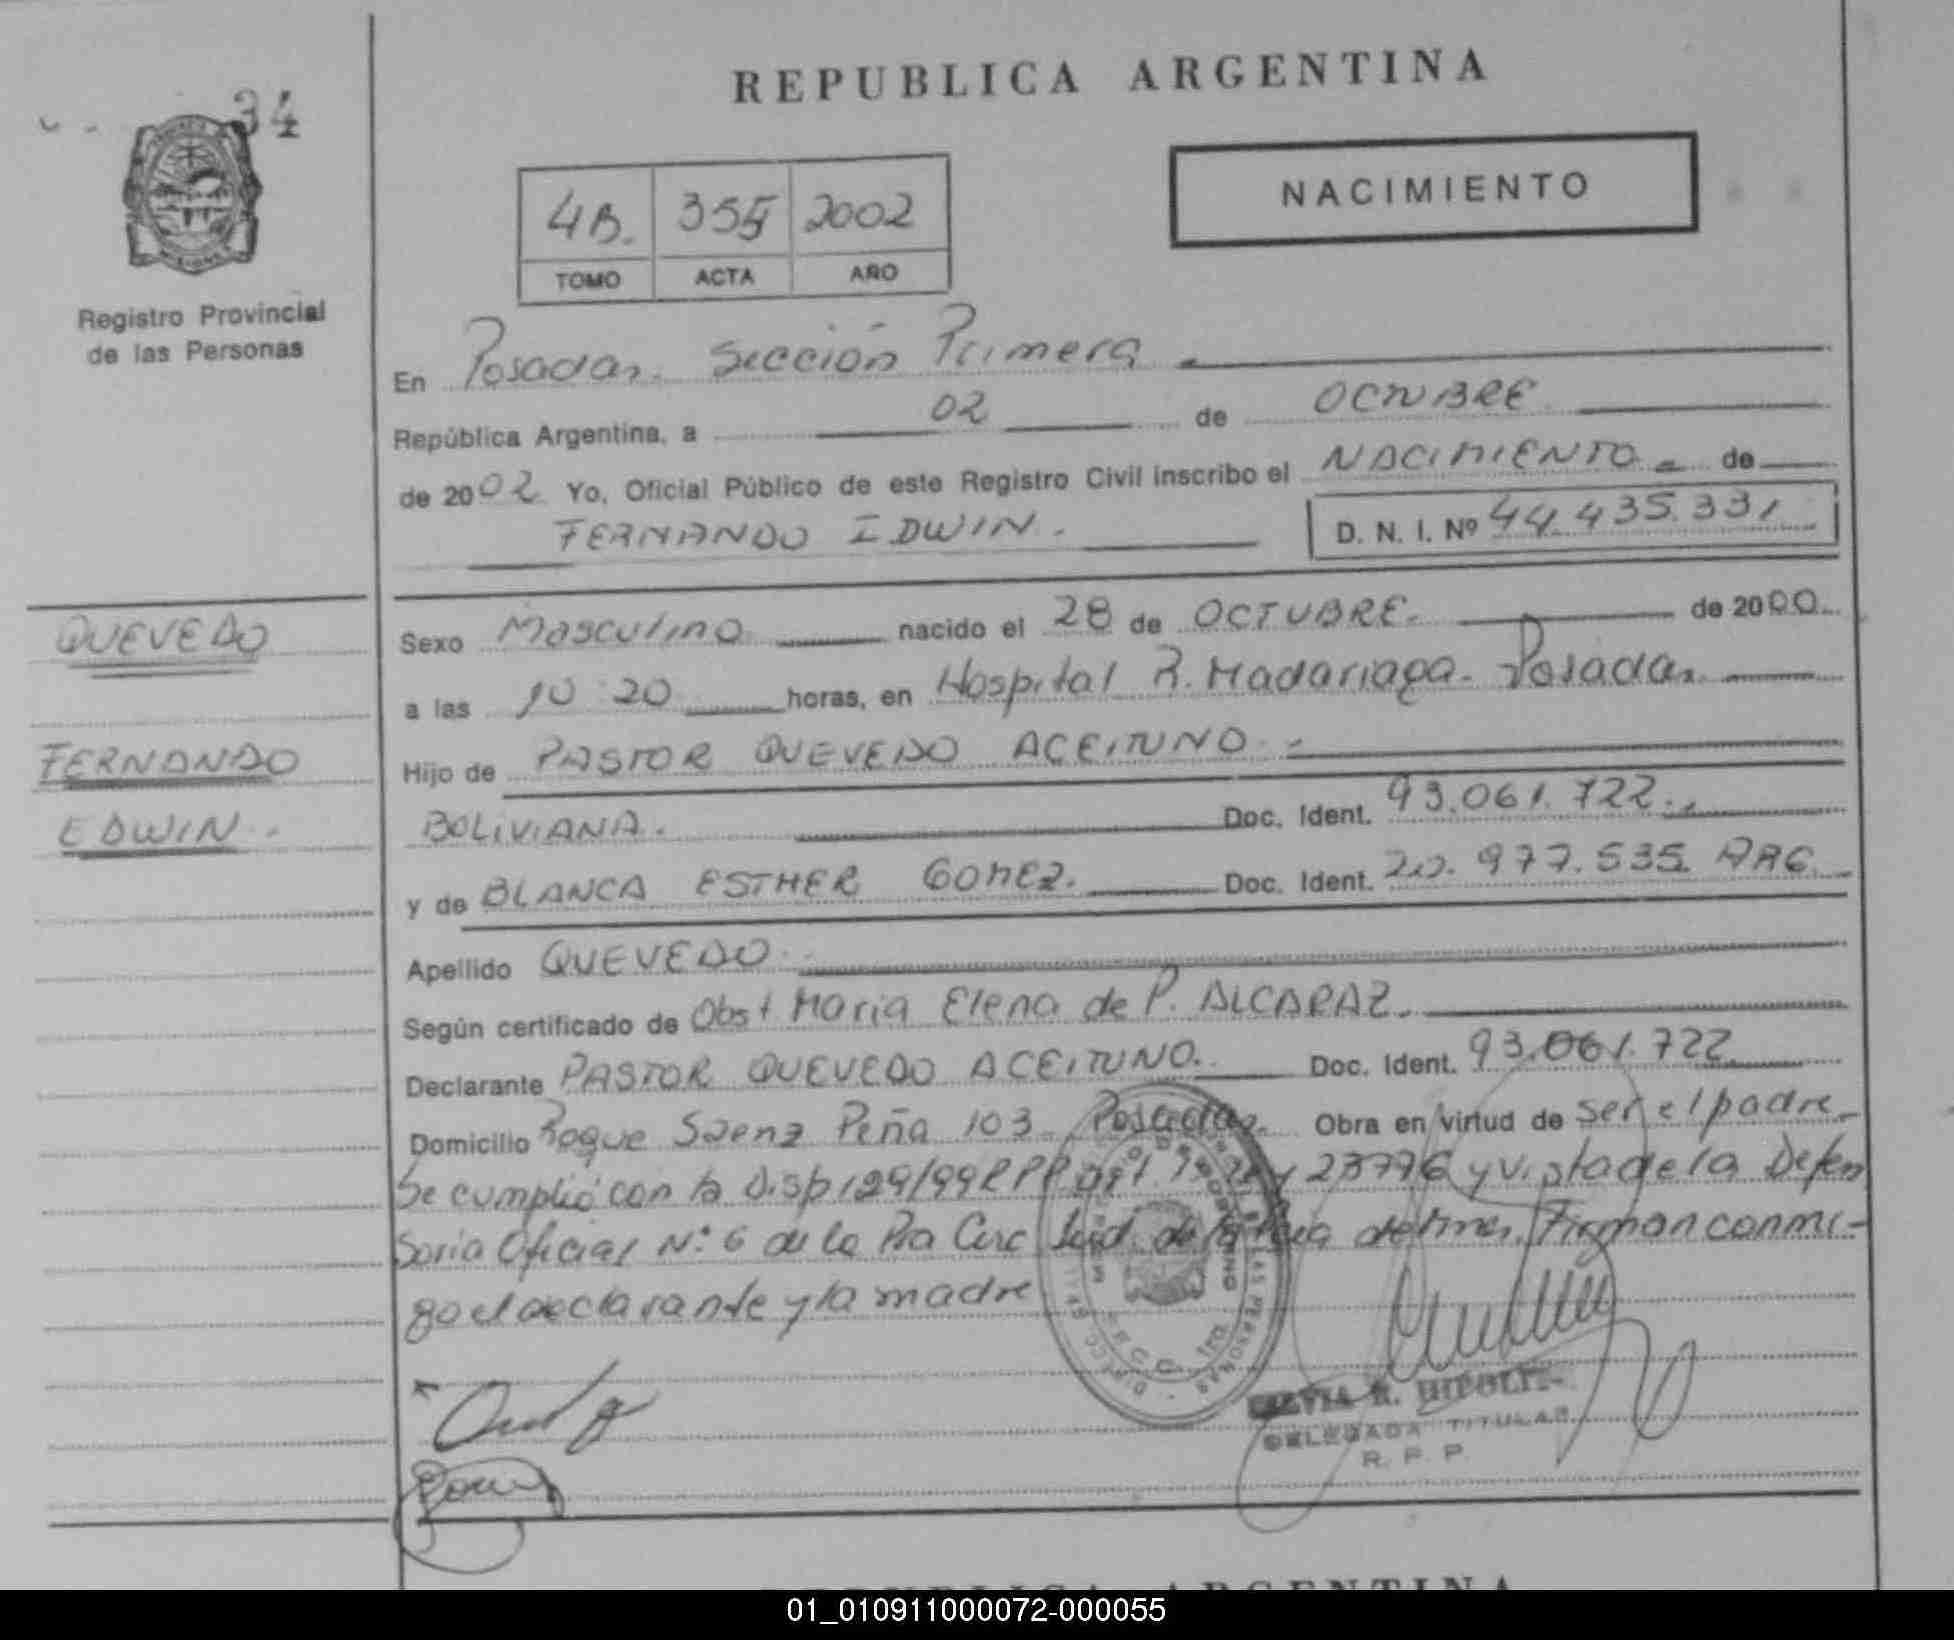 REPUBLICA ARGENTINA
34
NACIMIENTO
4B. 355 2002
TOMO ACTA AÑO
Registro Provincial
de las Personas
En Posadas. Sección Primera
República Argentina, a 02 de OCTUBRE
de 2002 Yo, Oficial Público de este Registro Civil inscribo el NACIMIENTO de
FERNANDO EDWIN. D. N. I. Nº 44.435.331
QUEVEDO
FERNANDO
EDWIN.
Sexo Masculino nacido el 28 de OCTUBRE. de 2000
a las 10:20 horas, en Hospital R. Madariaga. Posadas
Hijo de PASTOR QUEVEDO ACEITUNO.
BOLIVIANA. Doc. Ident. 93.061.722.
y de BLANCA ESTHER GOMEZ. Doc. Ident. 20.977.535. ARG.
Apellido QUEVEDO
Según certificado de Obst Maria Elena de P. ALCARAZ.
Declarante PASTOR QUEVEDO ACEITUNO. Doc. Ident. 93.061.722
Domicilio Roque Saenz Peña 103 Posadas. Obra en virtud de ser el padre
Se cumplió con la Disp 129/99 RPP 23776 y vista de la Defen
soria Oficial Nº 6 de la Pra Circ Jud. de la Pcia de Mnes. Firman conmi-
go el declarante y la madre
SILVIA R. HIPOLIT
DELEGADA TITULAR
R. P. P.
REPUBLICA ARGENTINA
01_010911000072-000055